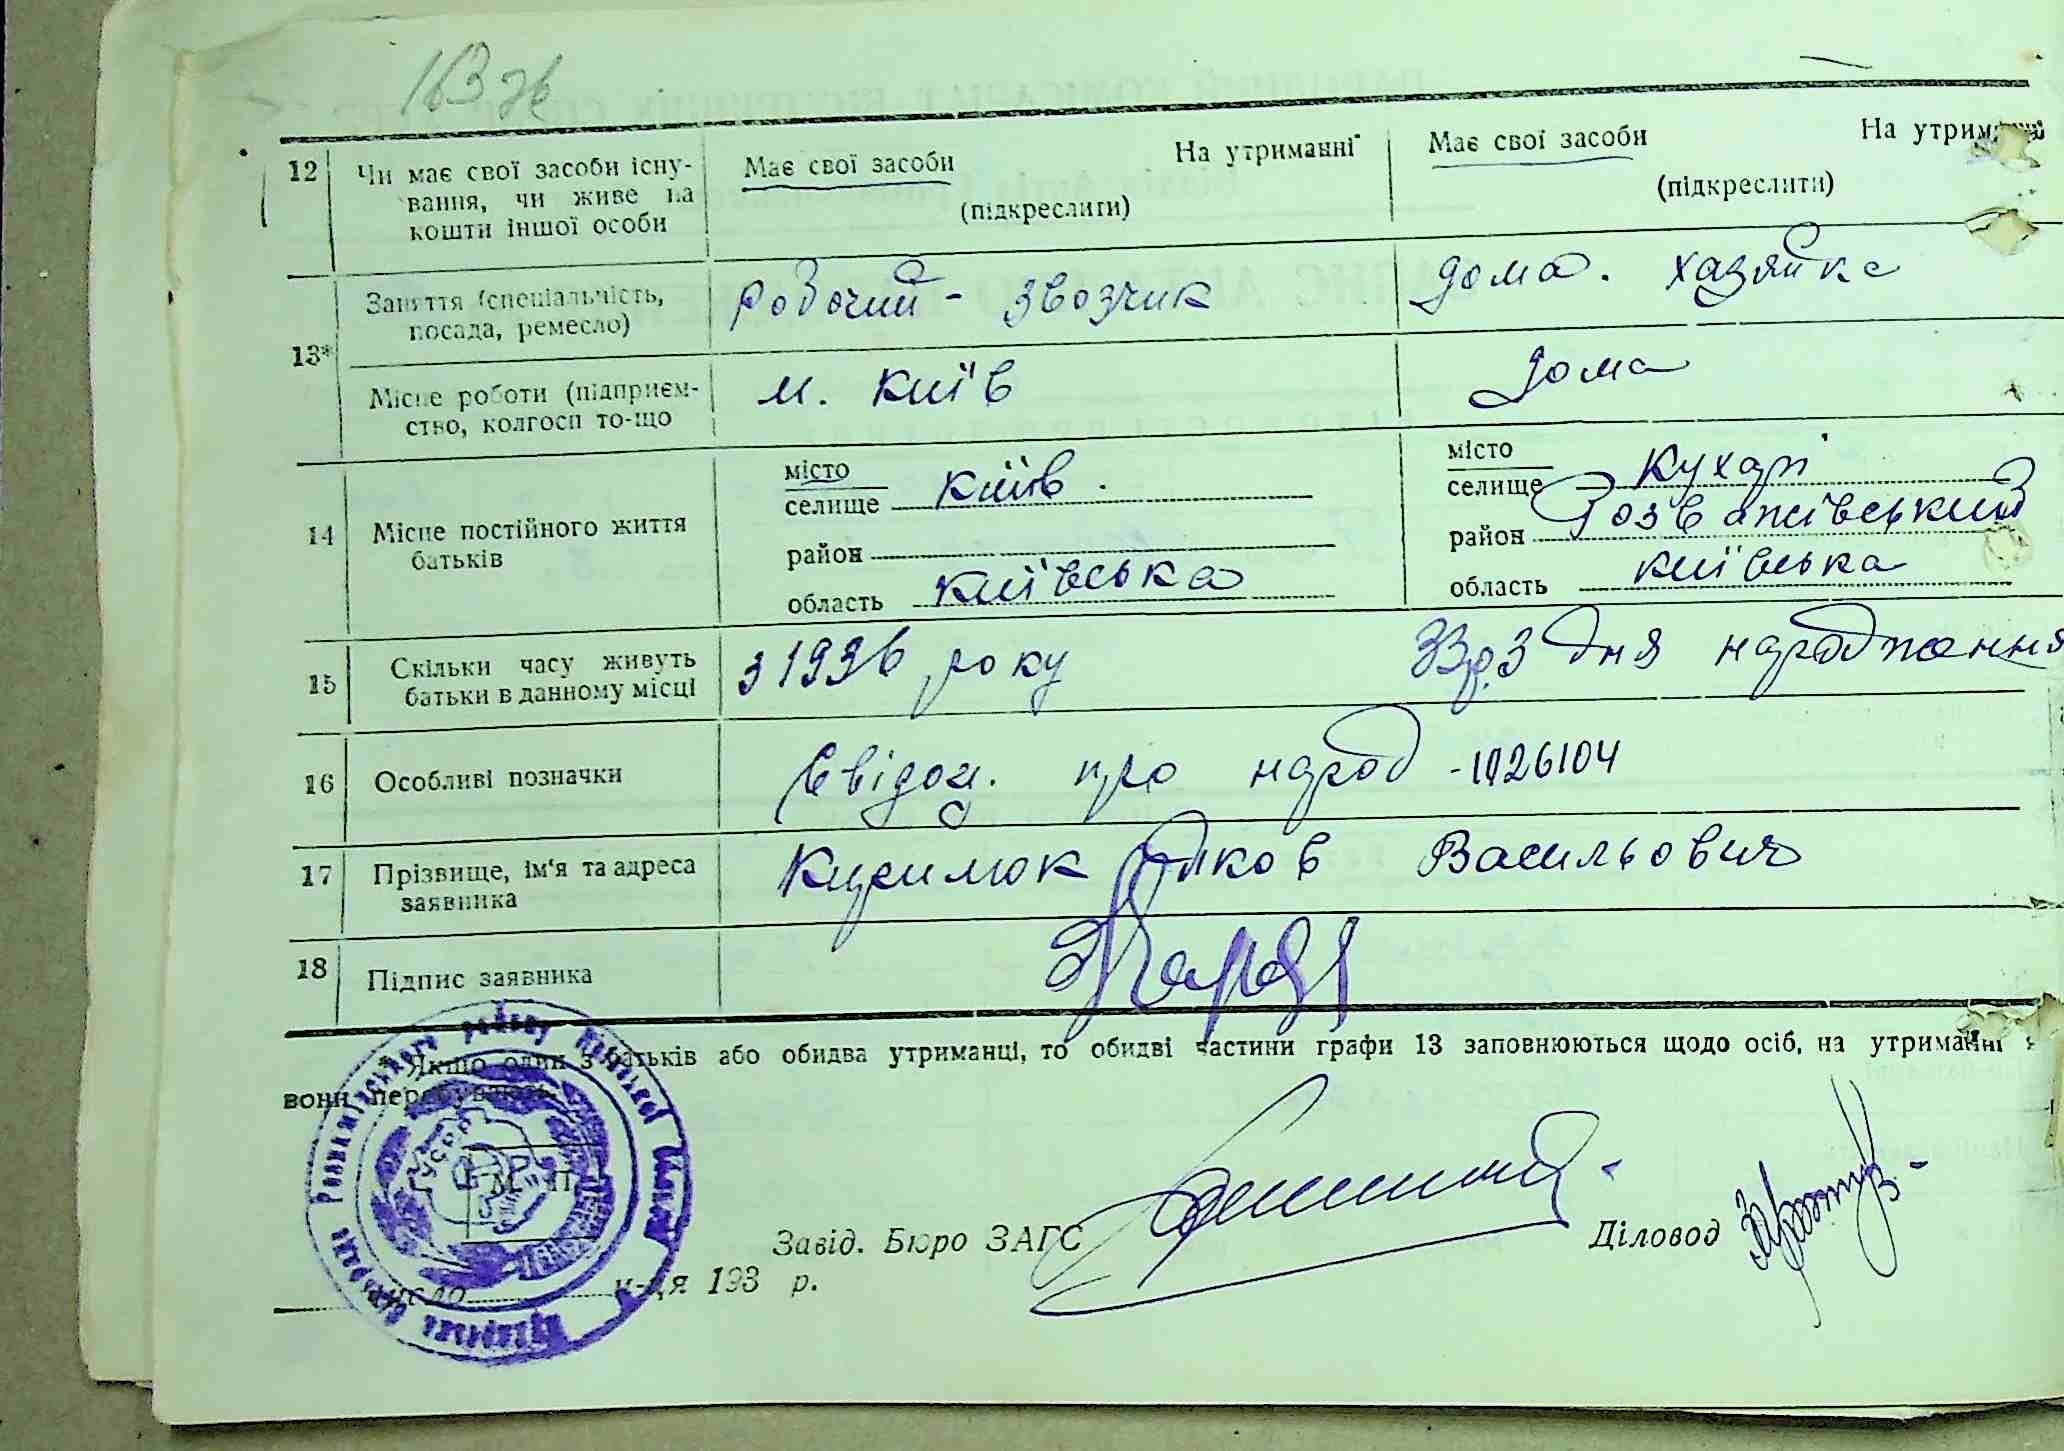 163зв
12 Чи має свої засоби існу-
вання, чи живе на
кошти іншої особи
Має свої засоби На утриманні
(підкреслити)
Має свої засоби На утриманні
(підкреслити)
13* Заняття (спеціальність,
посада, ремесло)
робочий - звозчик
дома. хазяйка
Місце роботи (підприєм-
ство, колгосп то-що
м. Київ
дома
14 Місце постійного життя
батьків
місто
селище Київ.
район
область Київська
місто
селище Кухарі
район Розважівський
область Київська
15 Скільки часу живуть
батьки в данному місці
з 1936 року
33р. З дня народження
16 Особливі позначки
Свідоц. про народ - 1126104
17 Прізвище, ім'я та адреса
заявника
Яков Васильович
18 Підпис заявника
* Якщо один з батьків або обидва утриманці, то обидві частини графи 13 заповнюються щодо осіб, на утриманні я
вони перебувають.
УСРР
М. П.
Завід. Бюро ЗАГС
Діловод
число м-ця 193 р.